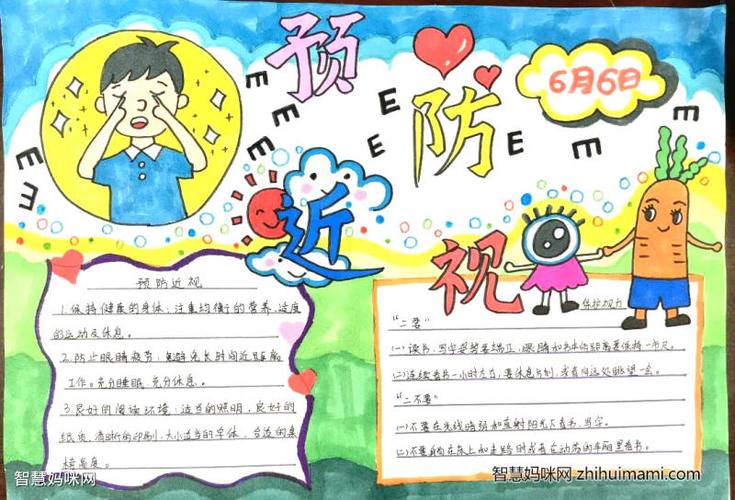 预
防
近
视
6月6日
E
E
E
E
E
E
E
E
E
E
预防近视
1.保持健康的身体,注重均衡的营养,适度
的运动及休息。
2.防止眼睛疲劳:
工作,充分睡眠,充分休息。
3.良好的阅读环境:适当的照明,良好的
纸质,清晰的印刷,大小适当的字体,合适的桌
椅高度。
保护视力
“二要”
(一)读书、写字姿势要端正,眼睛和书本的距离要保持一市尺。
(二)连续看书一小时左右,要休息片刻,或者向远处眺望一会。
“二不要”
(一)不要在光线暗弱和直射阳光下看书、写字。
(二)不要躺在床上和走路时或者在动荡的车厢里看书。
智慧妈咪网
智慧妈咪网 zhihuimami.com